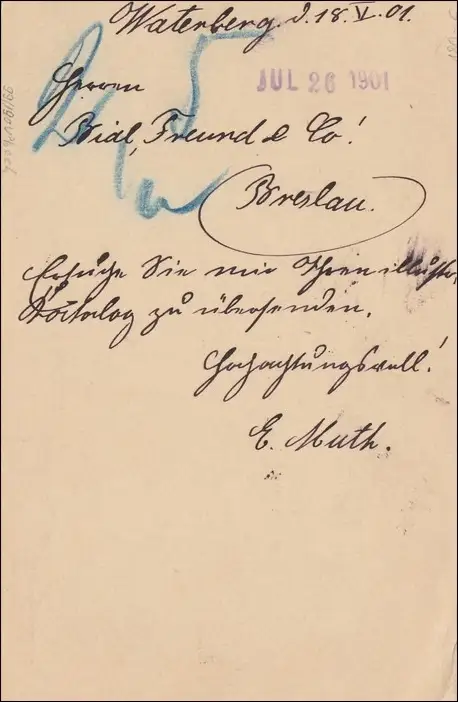 Waterberg. d. 18. V. 01.
JUL 26 1901
Herren
Bial, Freund & Co!
Breslau.
Ersuche Sie mir Ihren illustr.
Katalog zu übersenden.
Hochachtungsvoll!
E. Muth.